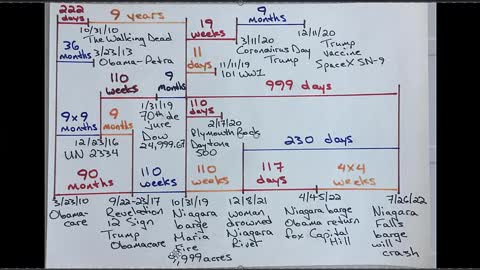 222 days
9 years
19 weeks
9 months
10/31/10
The Walking Dead
3/11/20
Coronavirus Day
Trump
12/11/20
Trump
vaccine
SpaceX SN-9
36 months
3/23/13
Obama-Petra
11 days
11/11/19
101 WWI
110 weeks
9 months
999 days
1/31/19
70th de
jure
Dow
24,999.67
110 days
2/17/20
Plymouth Rock
Daytona
500
9x9 months
9 months
12/23/16
UN 2334
230 days
90 months
110 weeks
110 weeks
117 days
4x4 weeks
3/23/10
Obama-
care
9/22-23/17
Revelation
12 Sign
Trump
Obamacare
10/31/19
Niagara
barge
Maria
Fire
9,999 acres
12/8/21
woman
drowned
Niagara
River
4/4-5/22
Niagara barge
Obama return
fox Capital
Hill
7/26/22
Niagara
Falls
barge
will
crash